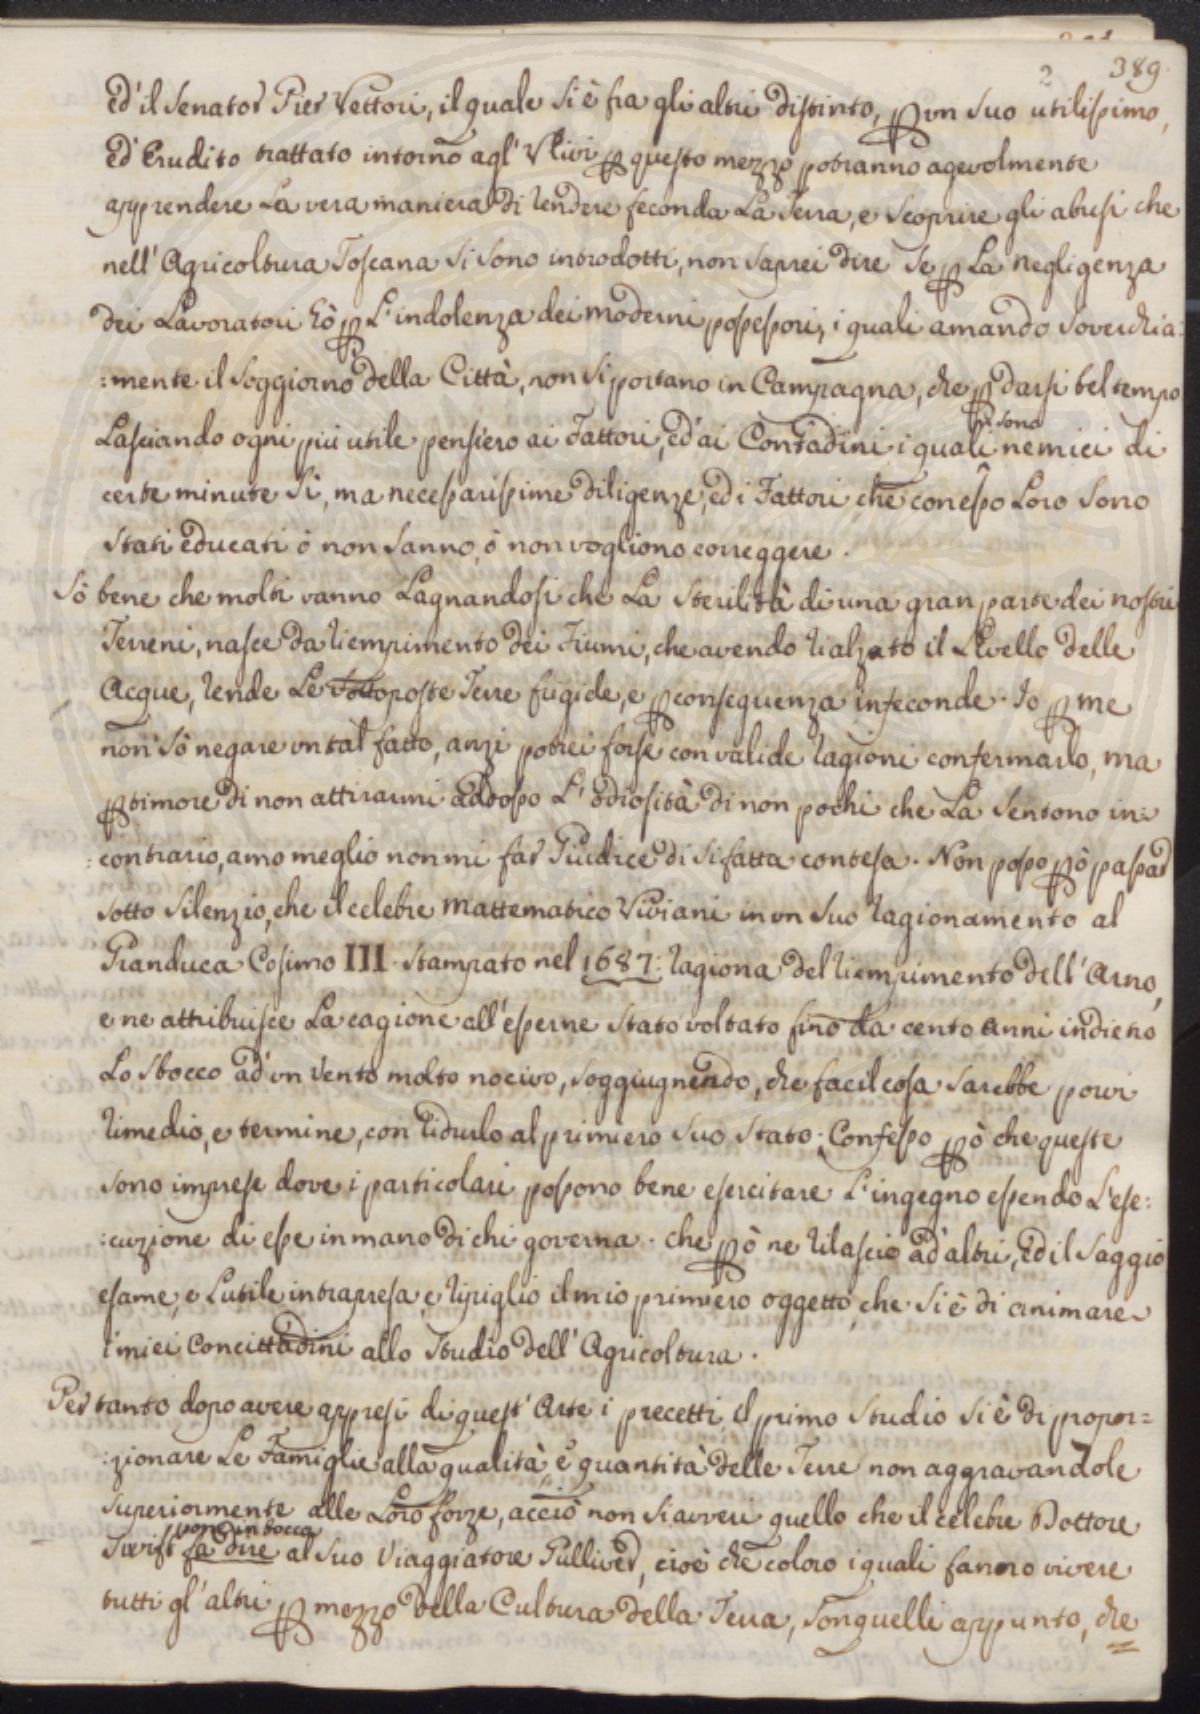 2 389.
ed' il Senator Pier Vettori, il quale si è fra gli altri distinto, p un suo utilissimo,
ed' Erudito trattato intorno agl' Ulivi p questo mezzo potranno agevolmente
apprendere La vera maniera di rendere feconda La Terra, e scoprire gli abusi che
nell' Agricoltura Toscana si sono introdotti, non saprei dire se p La negligenza
dei Lavoratori hò p L' indolenza dei moderni possessori, i quali amando soverchia:
:mente il soggiorno della Città, non si portano in Campagna, che p darsi bel tempo
Lasciando ogni più utile pensiero ai Fattori, ed' ai Contadini i quali nemici di
certe minute sì, ma necessarissime diligenze, ed i Fattori che con esso Loro sono
stati educati ò non sanno, ò non vogliono correggere.
Sò bene che molti vanno Lagnandosi che La sterilità di una gran parte dei nostri
Terreni, nasce da riempimento dei Fiumi, che avendo rialzato il Livello delle
Acque, rende Le sottoposte Terre frigide, e p conseguenza infeconde. Io p me
non sò negare un tal fatto, anzi potrei forse con valide ragioni confermarlo, ma
p timore di non attirarmi addosso L' odiosità di non pochi che La sentono in:
:contrario, amo meglio non mi far Giudice di sifatta contesa. Non posso pò passar
sotto silenzio, che il celebre mattematico Viviani in un suo ragionamento al
Granduca Cosimo III. stampato nel 1687: ragiona del riempimento dell' Arno,
e ne attribuisce La cagione all' esserne stato voltato fino da cento anni indietro
Lo sbocco ad' un Vento molto nocivo, soggiugnendo, che facil cosa sarebbe porvi
rimedio, e termine, con ridurlo al primiero suo stato. Confesso pò che queste
sono imprese dove i particolari possono bene esercitare L' ingegno essendo L' ese:
:cuzione di esse in mano di chi governa. che pò ne rilascio ad' altri, ed il saggio
esame, e L'utile intrapresa, e ripiglio il mio primiero oggetto, che si è di animare
i miei Concittadini allo studio dell' Agricoltura.
Per tanto dopo avere appresi di quest' Arte i precetti, il primo studio si è di propor=
:zionare Le Famiglie alla qualità, e quantità delle Terre non aggravandole
superiormente alle Loro forze, acciò non si avveri quello che il celebre Dottore
pone in bocca
Swift fa dire al suo Viaggiatore Gulliver, cioè che coloro i quali fanno vivere
tutti gl' altri p mezzo della Cultura della Terra, son quelli appunto, che